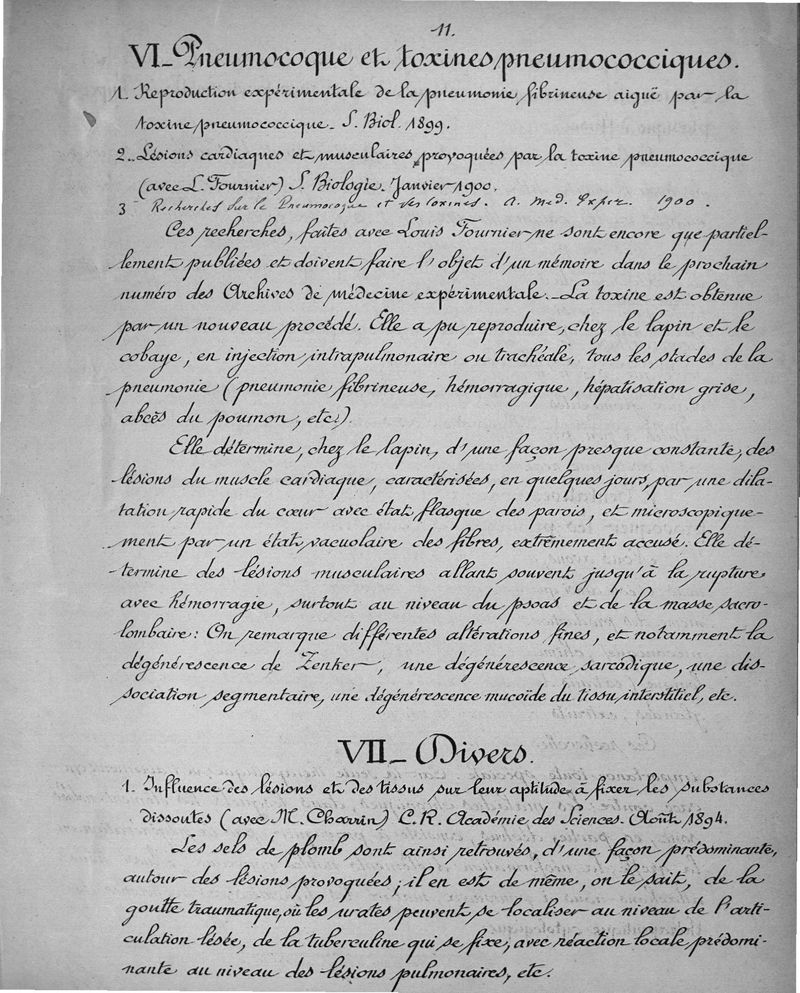 11.
VI_Pneumocoque et toxines pneumococciques.
1. Reproduction expérimentale de la pneumonie fibrineuse aiguë par la
toxine pneumococcique. S. Biol. 1899.
2.. Lésions cardiaques et musculaires provoquées par la toxine pneumococcique
(avec L. Fournier) S. Biologie. Janvier 1900.
3 - Recherches sur le Pneumocoque et ses toxines. A. Med. Exper. 1900.
Ces recherches, faites avec Louis Fournier ne sont encore que partiel-
lement publiées et doivent faire l'objet d'un mémoire dans le prochain
numéro des Archives de médecine expérimentale._La toxine est obtenue
par un nouveau procédé. Elle a pu reproduire, chez le lapin et le
cobaye, en injection intrapulmonaire ou trachéale, tous les stades de la
pneumonie (pneumonie fibrineuse, hémorragique, hépatisation grise,
abcès du poumon, etc.).
Elle détermine, chez le lapin, d'une façon presque constante, des
lésions du muscle cardiaque, caractérisées, en quelques jours, par une dila-
tation rapide du cœur avec état flasque des parois, et microscopique-
ment par un état vacuolaire des fibres, extrêmement accusé. Elle dé-
termine des lésions musculaires allant souvent jusqu'à la rupture
avec hémorragie, surtout au niveau du psoas et de la masse sacro-
lombaire: On remarque différentes altérations fines, et notamment la
dégénérescence de Zenker, une dégénérescence sarcodique, une dis-
sociation segmentaire, une dégénérescence mucoïde du tissu interstitiel, etc.
VII_ Divers.
1. Influence des lésions et des tissus sur leur aptitude à fixer les substances
dissoutes (avec M. Charrin) C.R. Académie des Sciences. Août 1894.
Les sels de plomb sont ainsi retrouvés, d'une façon prédominante,
autour des lésions provoquées; il en est de même, on le sait, de la
goutte traumatique, où les urates peuvent se localiser au niveau de l'arti-
culation lésée, de la tuberculine qui se fixe, avec réaction locale prédomi-
nante au niveau des lésions pulmonaires, etc.